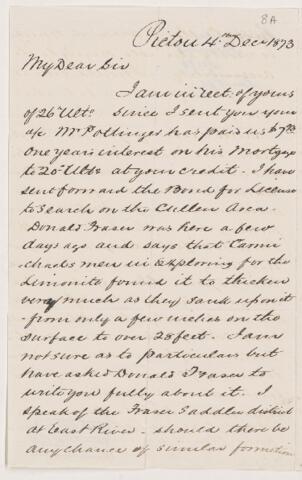 8A
Pictou 4th Decr 1873
My Dear Sir
I am in rect of yours
of 26th Ulto. Since I sent you your
a/c Mr Pollinger has paid us $
one years interest on his Mortgage
to 20th Ulto at your credit. I have
sent forward the Bond for License
to Search on the Cullen Area.
Donald Fraser was here a few
days ago and says that Carmi-
chaels men in exploring for the
Limonite found it to thicken
very much as they sank upon it
- from only a few inches on the
surface to over 28 feet. I am
not sure as to particulars but
have asked Donald Fraser to
write you fully about it. I
speak of the Fraser Saddler district
at East River - should there be
any chance of similar formation